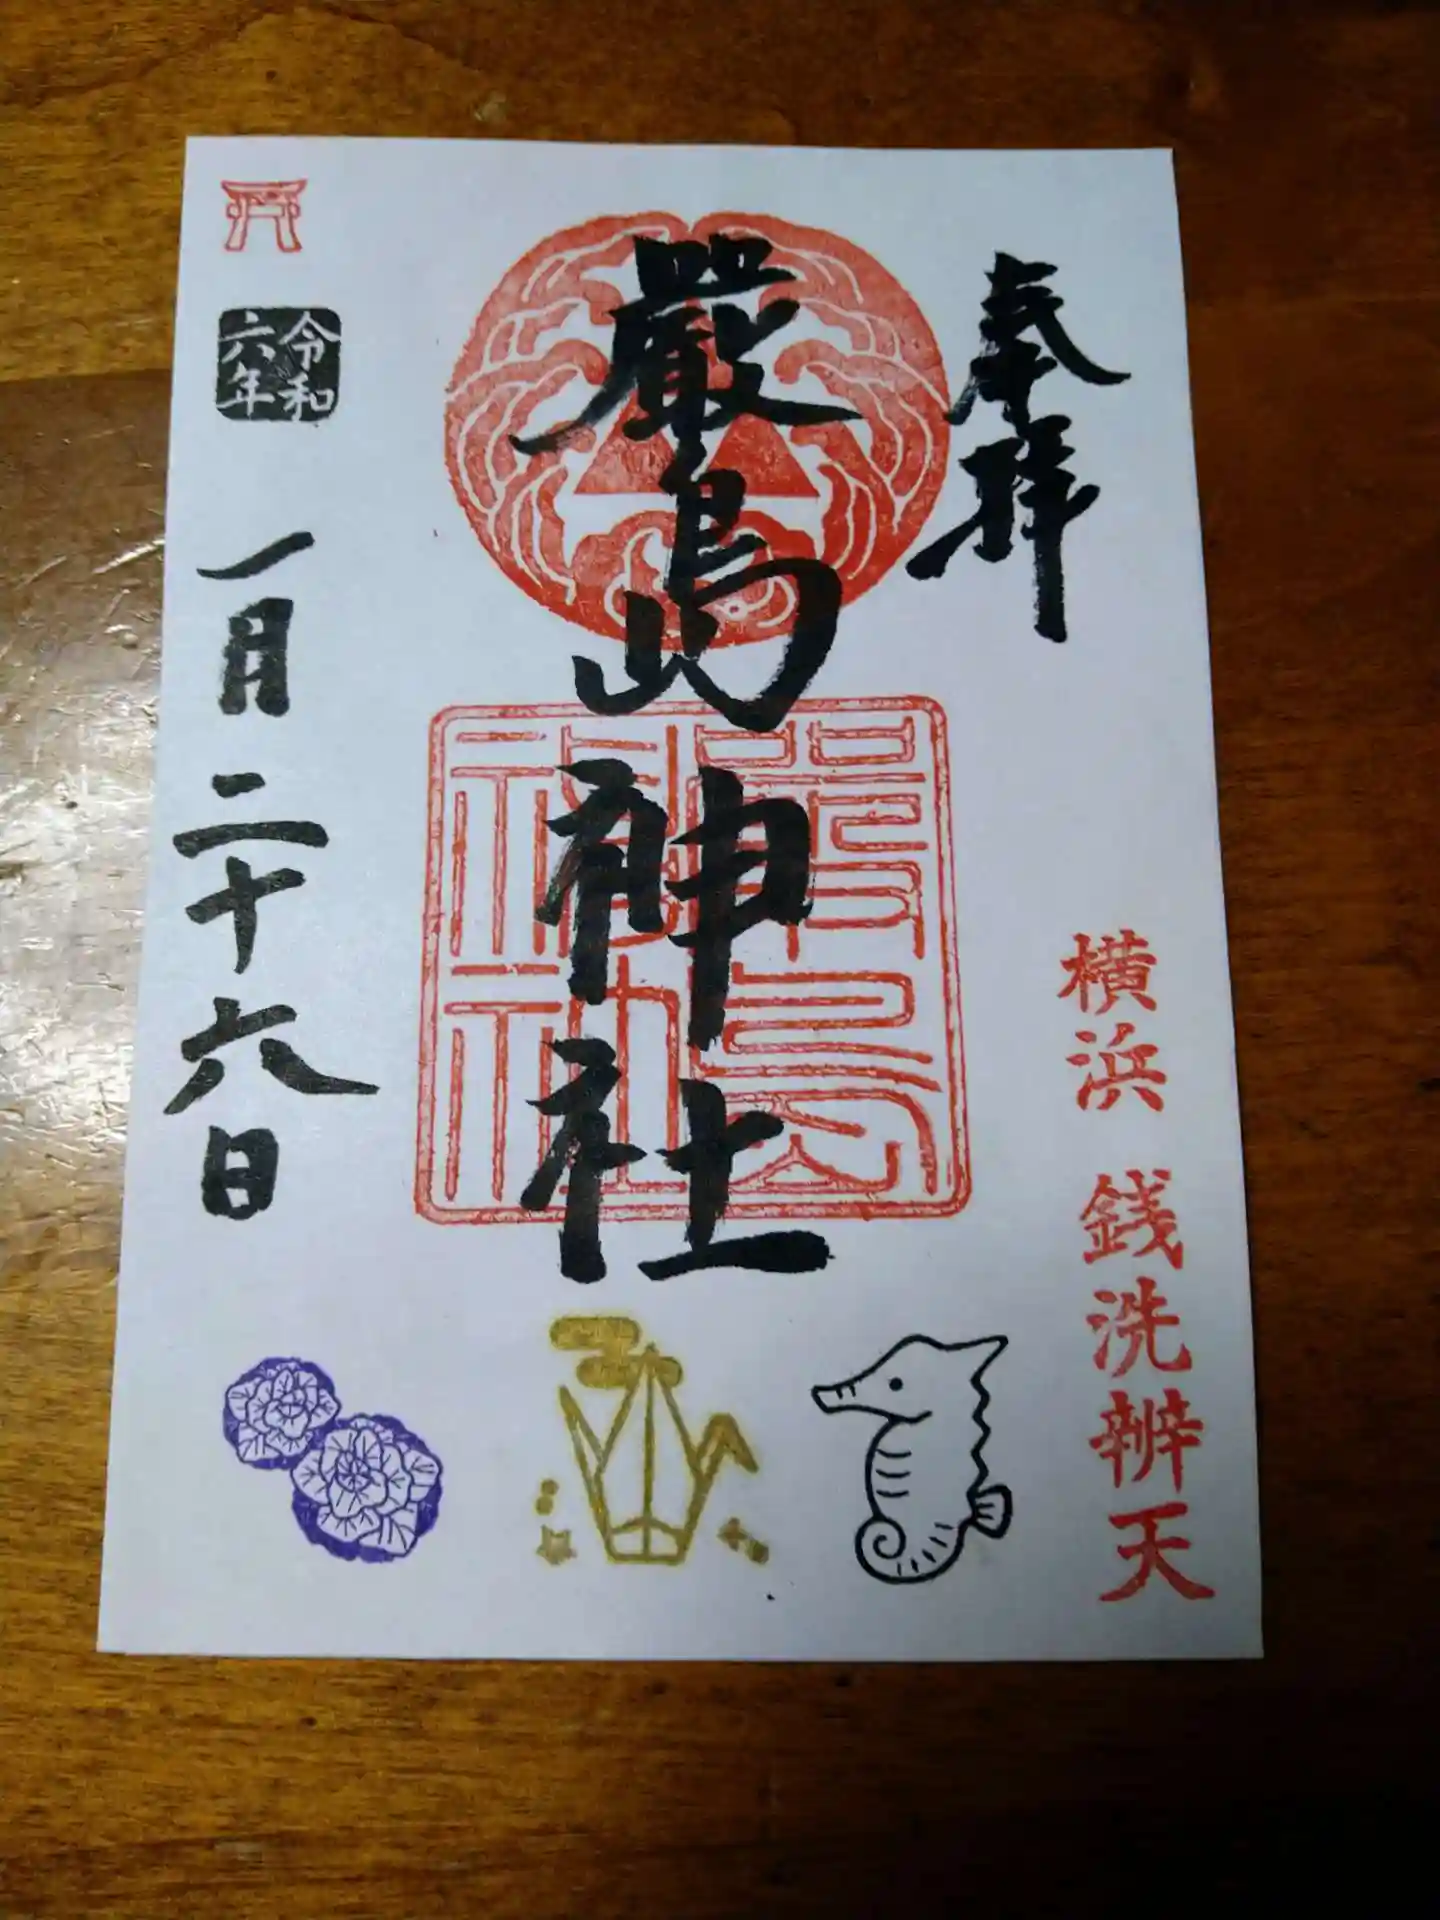 奉拝
横浜 銭洗辨天
嚴島神社
嚴島
神社
令和
六年
一月二十六日